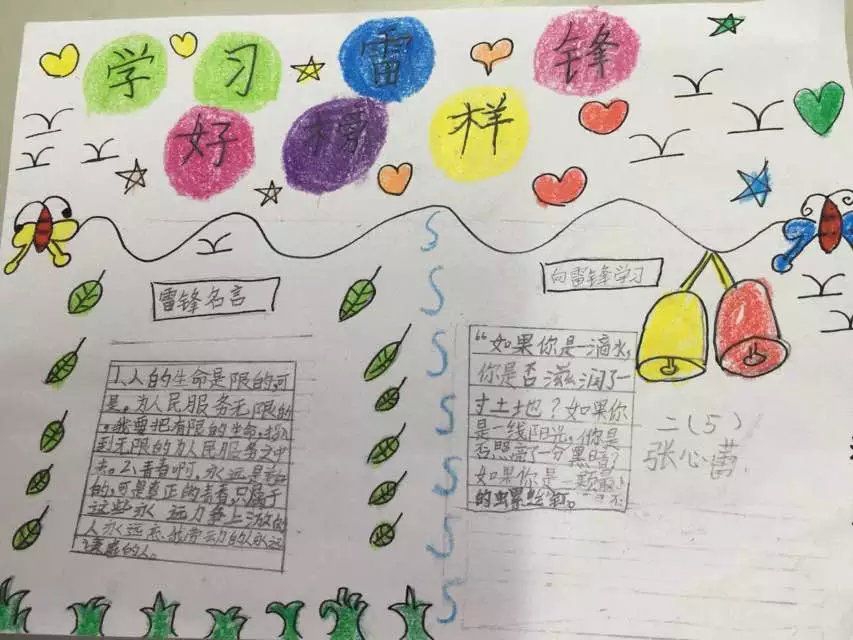 学习雷锋
好榜样
雷锋名言
1、人的生命是有限的可
是。为人民服务无限的
。我要把有限的生命，投
到无限的为人民服务之中
去。2、青春啊，永远是美好
的，可是真正的青春，只属于
这些永远力争上游的
人永远忘我劳动的人永远
谦虚的人。
向雷锋学习
“如果你是一滴水，
你是否滋润了一
寸土地？如果你
是一线阳光，你是
否照亮了一分黑暗？
如果你是一颗
的螺丝钉。
二（5）
张心蕾